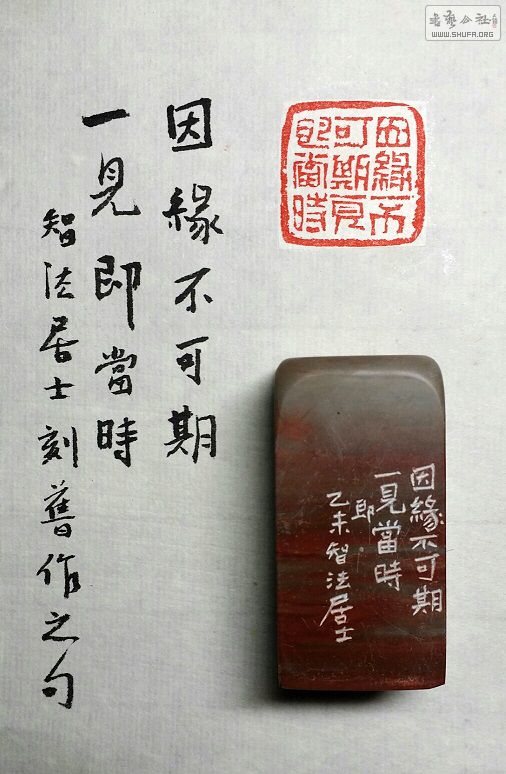 因緣不可期
一見即當時
智法居士刻舊作之句
因緣不
可期一見
即當時
因緣不可期
一見當時
即
乙未智法居士
書藝公社
WWW.SHUFA.ORG